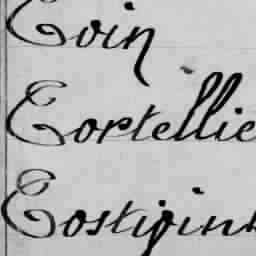 Coin
Cortellie
Costigin